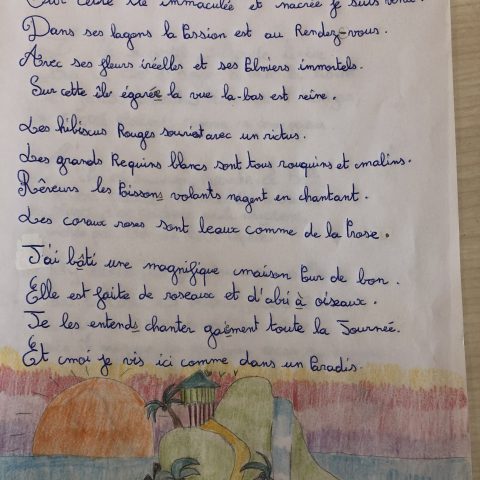 cette île immaculée et nacrée je suis venu.
Dans ses lagons la Passion est au Rendez-vous.
Avec ses fleurs iréelles et ses Palmiers immortels.
Sur cette île égarée la vue la-bas est reine.
Les hibiscus Rouges sourient avec un rictus.
Les grands Requins blancs sont tous rouquins et malins.
Rêveurs les Poissons volants nagent en chantant.
Les coraux roses sont beaux comme de la Prose.
J'ai bâti une magnifique maison Pur de bon.
Elle est faite de roseaux et d'abri à oiseaux.
Je les entends chanter gaëment toute la Journée.
Et moi je vis ici comme dans un Paradis.